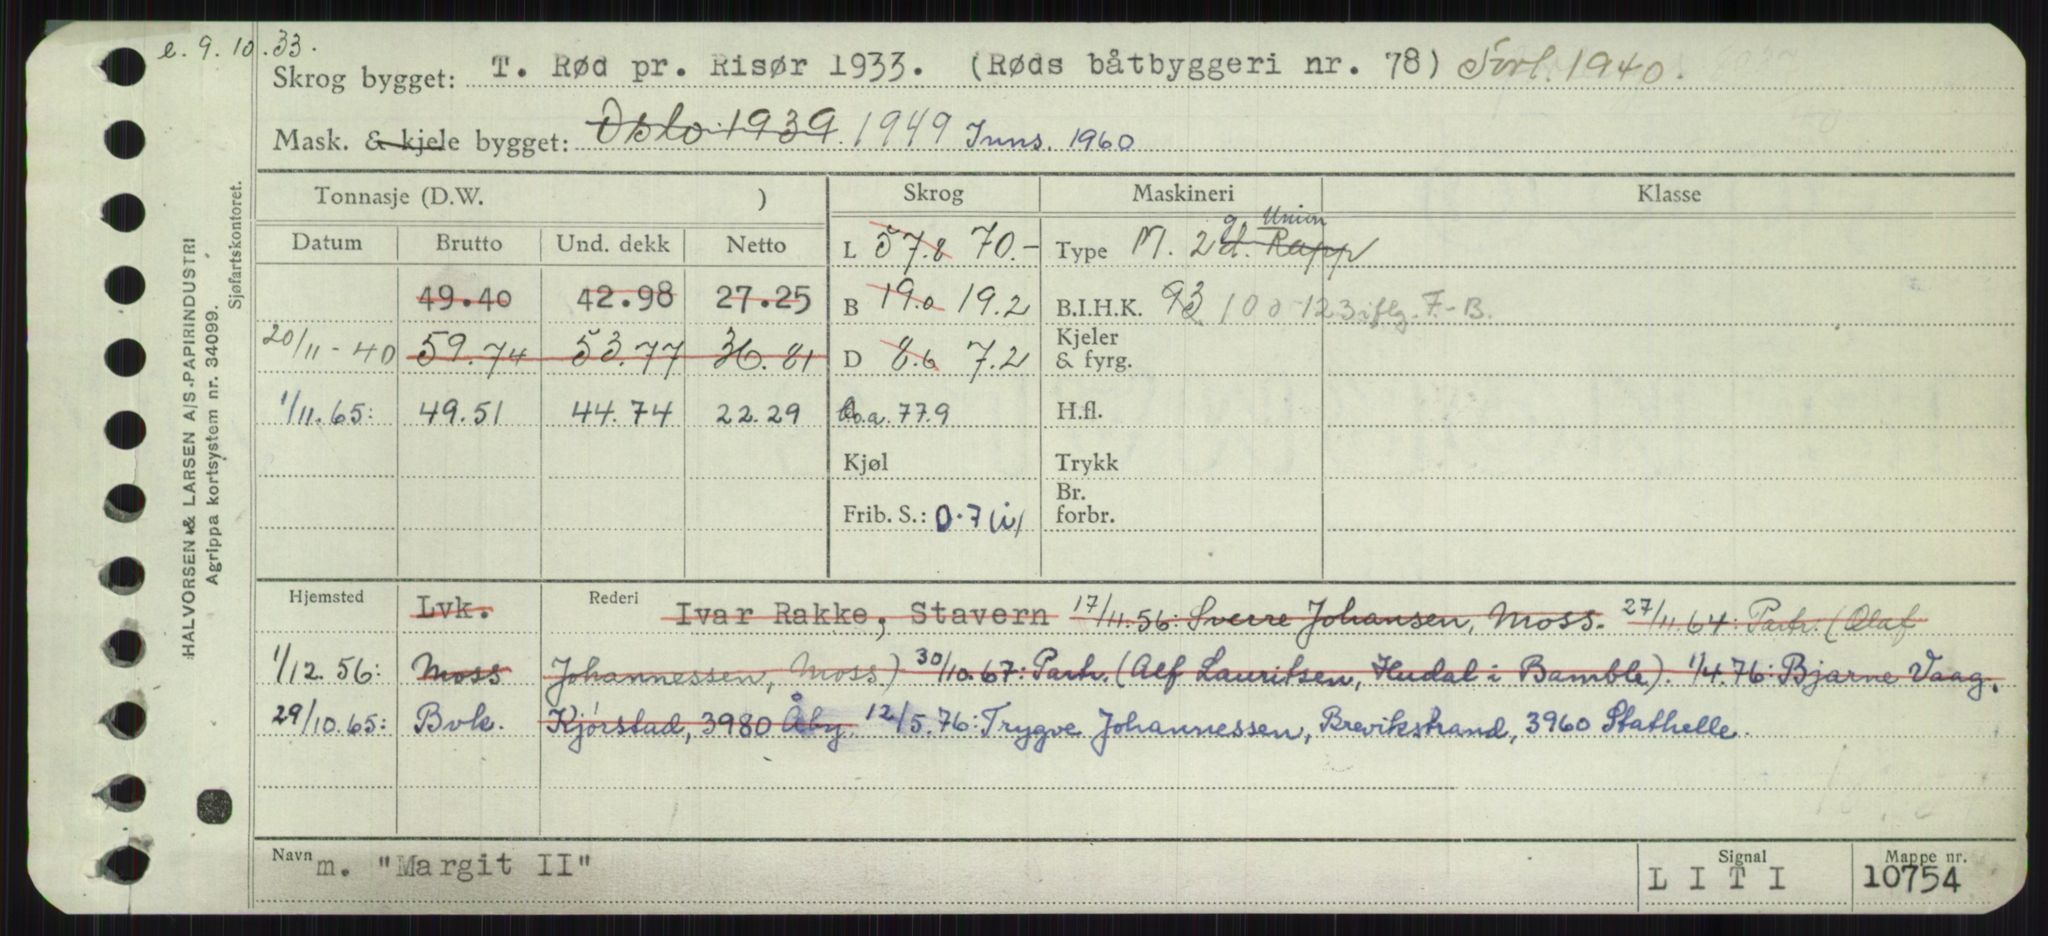 e. 9.10.33.
Skrog bygget: T. Rød pr. Risør 1933. (Røds båtbyggeri nr. 78) Forl. 1940.
Mask. & kjele bygget: Oslo 1939. 1949 Inns. 1960
Tonnasje (D.W. ) Skrog Maskineri Klasse
Datum Brutto Und. dekk Netto
L 57.8 70.- Type M. 2 d. Rapp g. Union
49.40 42.98 27.25 B 19.0 19.2 B.I.H.K. 93 100-123 iflg. F.-B.
20/11-40 59.74 53.77 36.81 D 8.6 7.2 Kjeler & fyrg.
1/11.65: 49.51 44.74 22.29 o.a. 77.9 H.fl.
Kjøl Trykk
Frib. S.: 0.7 (i) Br. forbr.
Hjemsted Lvk. Rederi Ivar Rakke, Stavern 17/11.56: Sverre Johansen, Moss. 27/11.64: Partr. (Olaf
1/12.56: Moss Johannessen, Moss) 30/10.67: Partr. (Alf Lauritsen, Hudal i Bamble). 1/4.76: Bjarne Vaag,
29/10.65: Bvk. Kjørstad, 3980 Åby. 12/5.76: Trygve Johannessen, Brevikstrand, 3960 Stathelle.
Navn m. "Margit II" Signal L I T I Mappe nr. 10754
HALVORSEN & LARSEN A/S.-PAPIRINDUSTRI
Agrippa kortsystem nr. 34099.
Sjøfartskontoret.